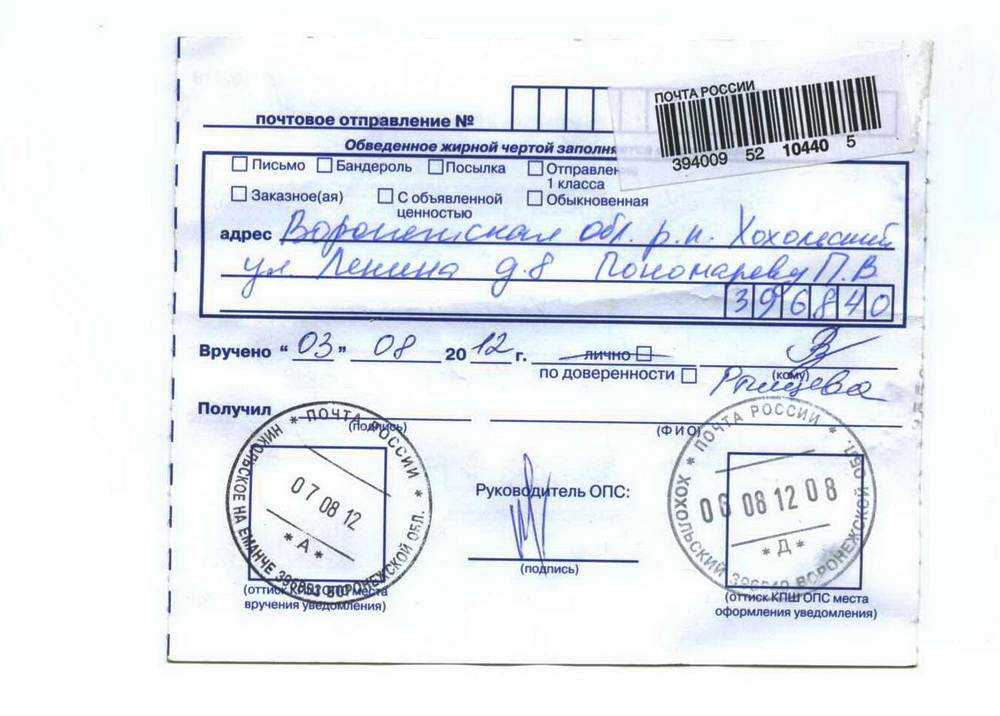 ПОЧТА РОССИИ
394009 52 10440 5
почтовое отправление №
Обведенное жирной чертой заполня
Письмо Бандероль Посылка Отправлен
1 класса
Заказное(ая) С объявленной ценностью Обыкновенная
адрес Воронежская обл. р.п. Хохольский
ул Ленина д.8 Пономареву П.В
396840
Вручено “03” 08 2012 г. лично
(кому)
по доверенности
Получил
(подпись) (ФИО)
* ПОЧТА РОССИИ * НИКОЛЬСКОЕ НА ЕМАНЧЕ 396853 ВОРОНЕЖСКОЙ ОБЛ.
07 08 12
* А *
Руководитель ОПС:
(подпись)
* ПОЧТА РОССИИ * ХОХОЛЬСКИЙ 396840 ВОРОНЕЖСКОЙ ОБЛ.
06 08 12 08
* Д *
(оттиск КПШ ОПС места
вручения уведомления)
(оттиск КПШ ОПС места
оформления уведомления)